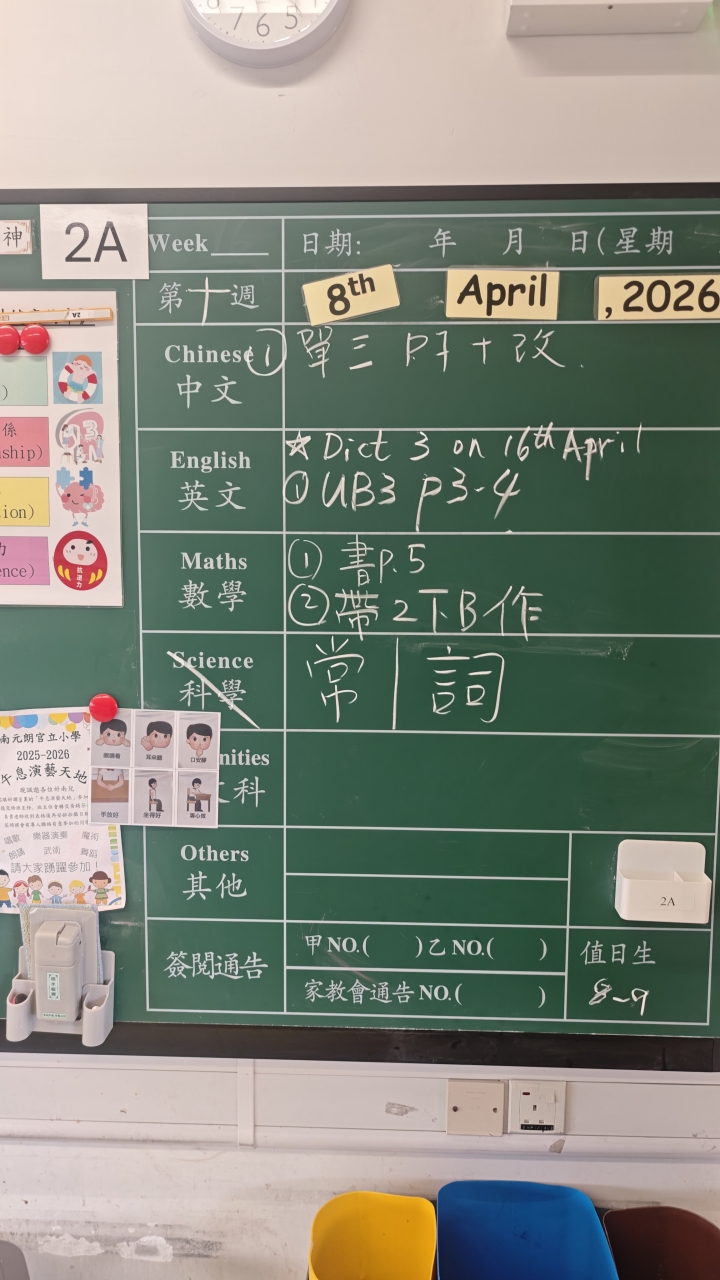 7 6 5
神
2A
Week____ 日期: 年 月 日(星期
第十週 8th April , 2026
Chinese ① 單三 P.7 + 改.
中文
English ☆ Dict 3 on 16th April
英文 ① UB3 P3-4
Maths ① 書P.5
數學 ② 帶2下B作
Science
科學 常 | 詞
nities
科
Others
其他
簽閱通告 甲NO.( )乙NO.( ) 值日生
家教會通告NO.( ) 8-9
2A
係
nship)
ion)
力
ence)
抗逆力
南元朗官立小學
2025-2026
午息演藝天地
唱歌 樂器演奏 魔術
朗誦 武術 舞蹈
請大家踴躍參加!
眼睛看 耳朵聽 口安靜
手放好 坐得好 專心做